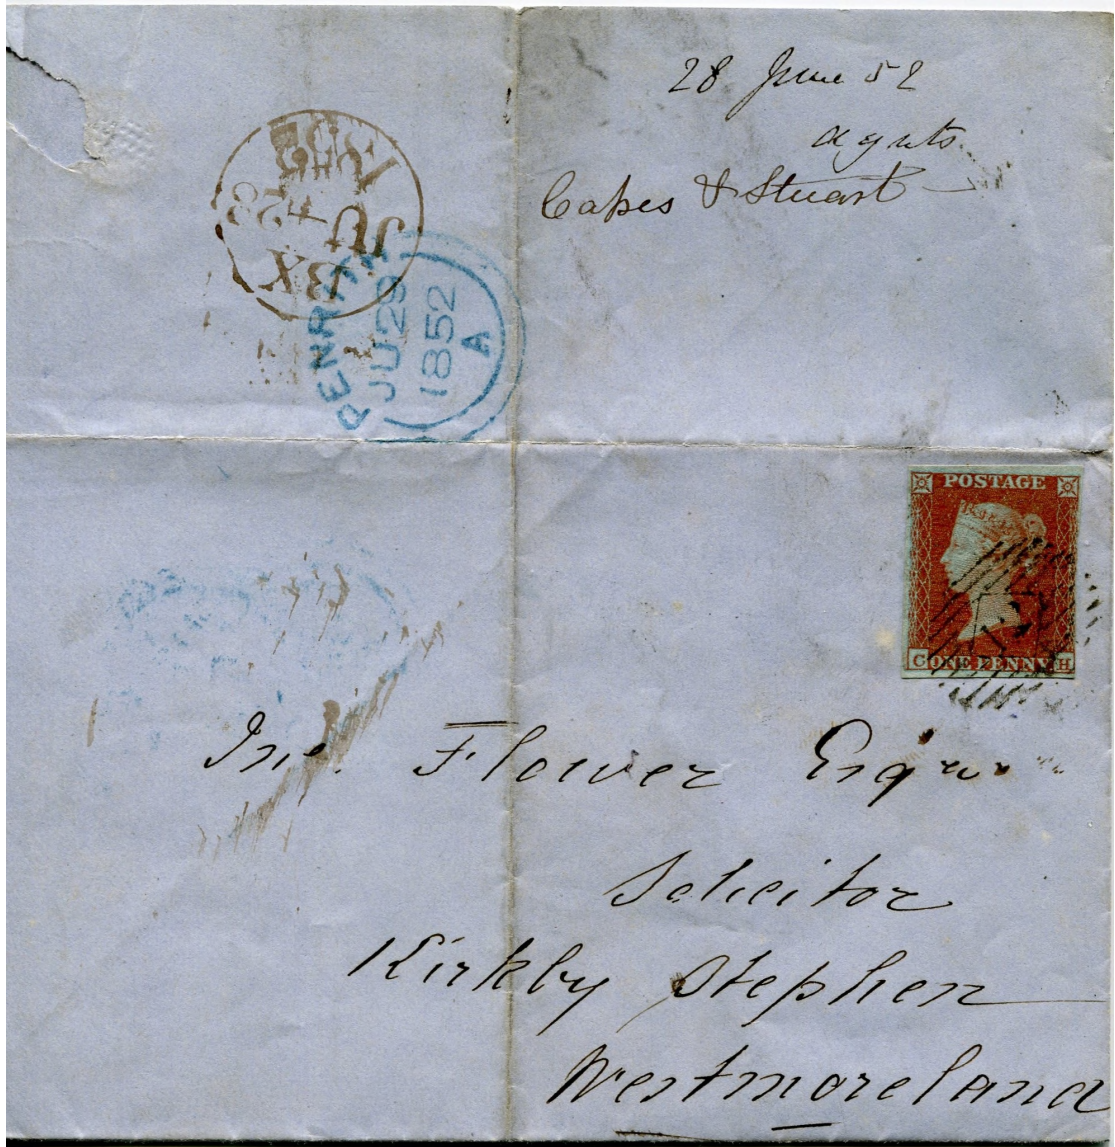 28 June 52
agnts
Capes & Stuart
BX
JU 28
1852
PENRITH
JU 29
1852
A
POSTAGE
C ONE PENNY H
Jno. Flower Esqre
Solicitor
Kirkby Stephen
Westmoreland